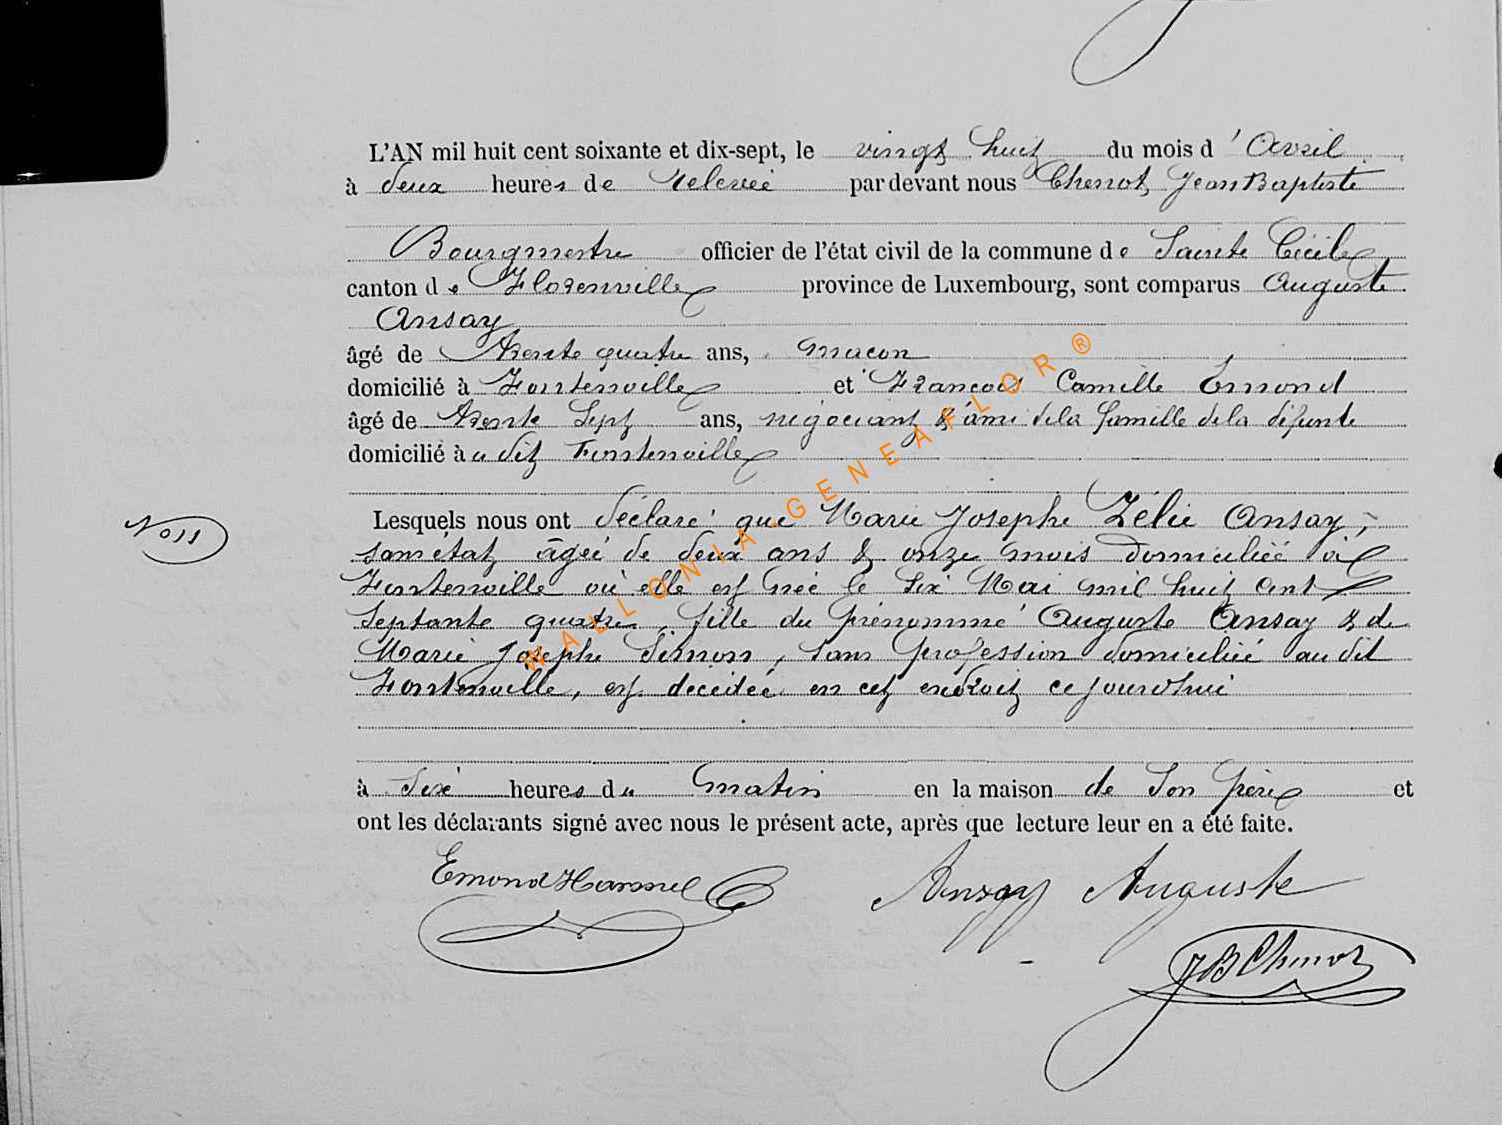 L'AN mil huit cent soixante et dix-sept, le vingt huit du mois d'Avril
à deux heures de relevée par devant nous Chenot, Jean Baptiste
Bourgmestre officier de l'état civil de la commune de Sainte Cécile
canton de Florenville province de Luxembourg, sont comparus Auguste
Ansay
âgé de Trente quatre ans, macon
domicilié à Fontenoille et Francois Camille Emond
âgé de Trente Sept ans, négociant & ami de la famille de la défunte
domicilié audit Fontenoille
N° 11
Lesquels nous ont déclaré que Marie Josephe Zélie Ansay,
sans état, âgée de deux ans & onze mois domiciliée à
Fontenoille où elle est née le Six Mai mil huit cent
Septante quatre, fille du prénommé Auguste Ansay & de
Marie Josephe Simon, sans profession domiciliée audit
Fontenoille, est décédée en cet endroit cejourd'hui
à Six heures du matin en la maison de Son père et
ont les déclarants signé avec nous le présent acte, après que lecture leur en a été faite.
Emond Hamel
Ansay Auguste
JB Chenot
WALLONIA-GENEAFLOR ®